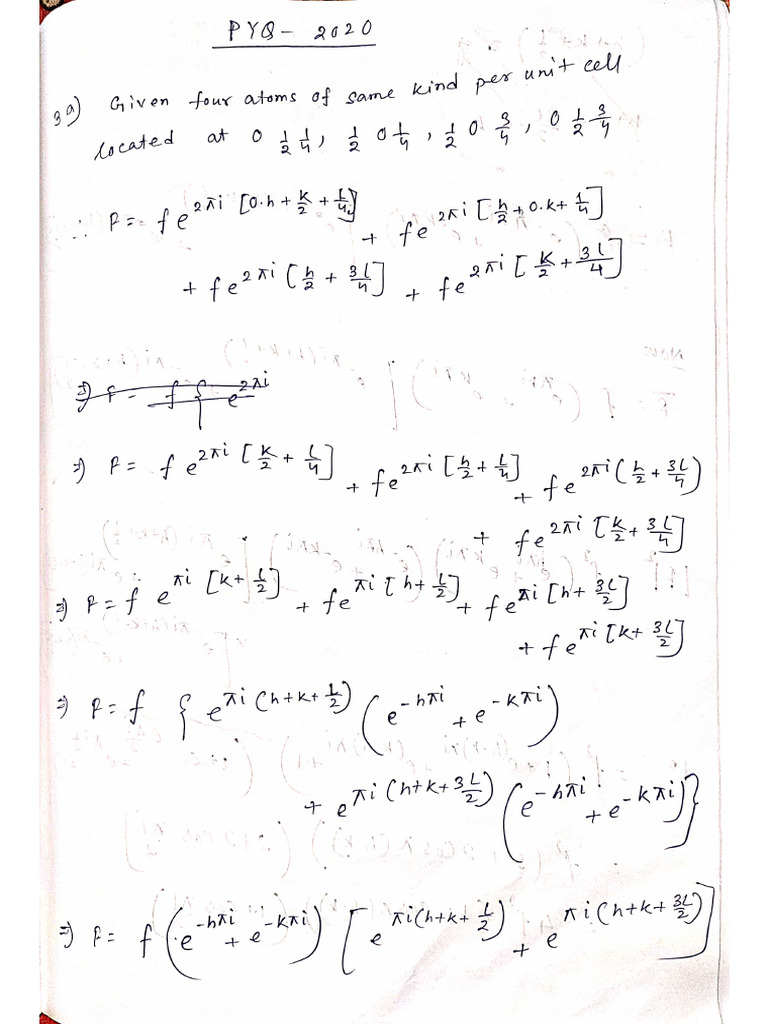 PYQ - 2020
3a) Given four atoms of same kind per unit cell
located at 0 1/2 1/4, 1/2 0 1/4, 1/2 0 3/4, 0 1/2 3/4
∴ F = f e^{2πi [0.h + k/2 + l/4]} + f e^{2πi [h/2 + 0.k + l/4]}
+ f e^{2πi [h/2 + 3l/4]} + f e^{2πi [k/2 + 3l/4]}
⇒ F = f { e^{2πi}
⇒ F = f e^{2πi [k/2 + l/4]} + f e^{2πi [h/2 + l/4]} + f e^{2πi (h/2 + 3l/4)}
+ f e^{2πi [k/2 + 3l/4]}
⇒ F = f e^{πi [k + l/2]} + f e^{πi [h + l/2]} + f e^{πi [h + 3l/2]}
+ f e^{πi [k + 3l/2]}
⇒ F = f { e^{πi (h+k+ l/2)} (e^{-hπi} + e^{-kπi})
+ e^{πi (h+k+ 3l/2)} (e^{-hπi} + e^{-kπi}) }
⇒ F = f (e^{-hπi} + e^{-kπi}) [ e^{πi(h+k+ l/2)} + e^{πi(h+k+ 3l/2)} ]